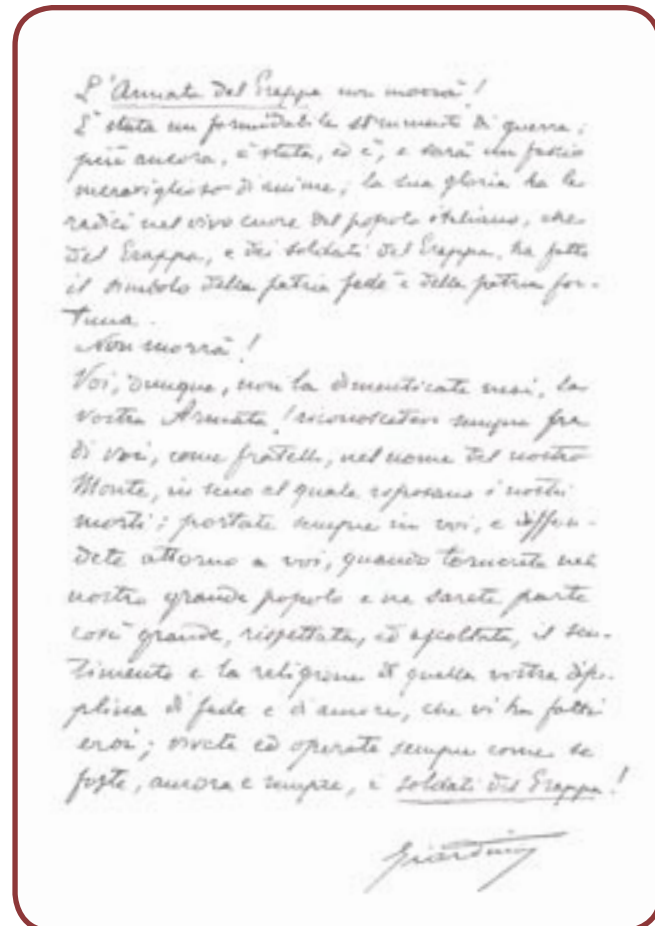 L'Armata del Grappa non morrà!
È stata un formidabile strumento di guerra;
più ancora, è stata, ed è, e sarà un fascio
meraviglioso di anime; la sua gloria ha le
radici nel vivo cuore del popolo italiano, che
del Grappa, e dei soldati del Grappa, ha fatto
il simbolo della patria fede e della patria for-
tuna.
Non morrà!
Voi, dunque, non la dimenticate mai, la
vostra Armata! riconoscetevi sempre fra
di voi, come fratelli, nel nome del nostro
Monte, in seno al quale riposano i nostri
morti: portate sempre in voi, e diffon-
dete attorno a voi, quando tornerete nel
nostro grande popolo e ne sarete parte
così grande, rispettata, ed ascoltata, il sen-
timento e la religione di quella vostra disci-
plina di fede e di amore, che vi ha fatti
eroi; vivete ed operate sempre come se
foste, ancora e sempre, i soldati del Grappa!
Giardino